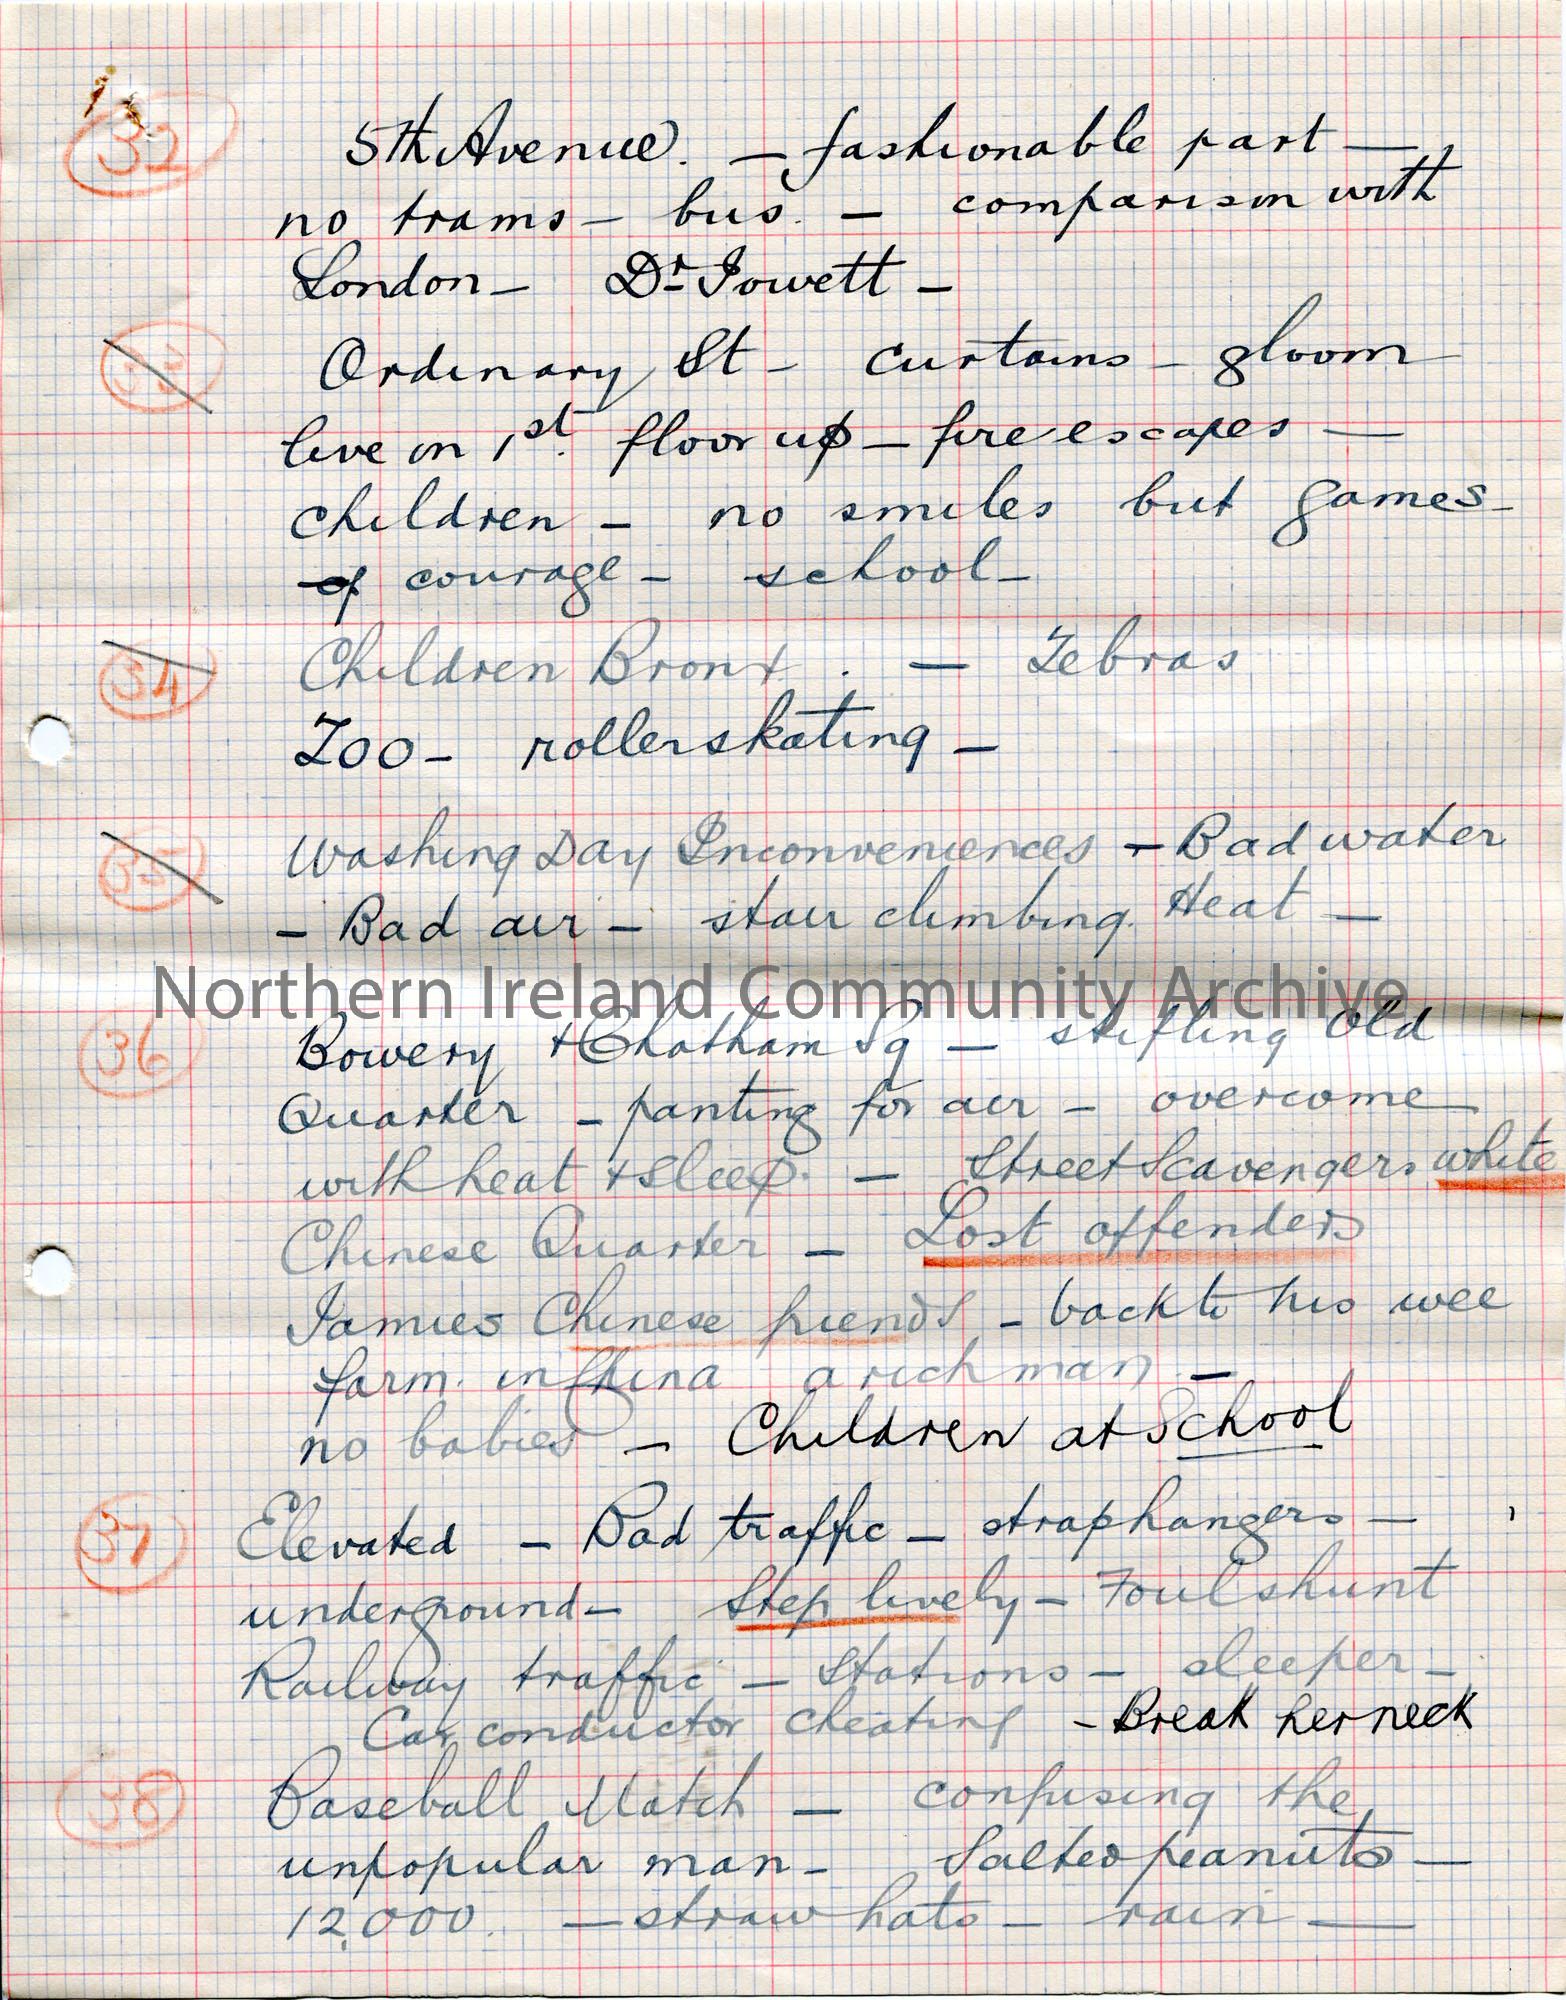 32 5th Avenue. — fashionable part —
no trams — bus. — comparison with
London — Dr. Jowett —
33 Ordinary St — Curtains — gloom
live on 1st. floor up — fire escapes —
children — no smiles but games —
of courage — school —
34 Children Bronx. — Zebras
Zoo — rollerskating —
35 Washing Day Inconveniences — Bad water
— Bad air — stair climbing. Heat —
Northern Ireland Community Archive
36 Bowery + Chatham Sq — stifling Old
Quarter — panting for air — overcome
with heat + sleep. — Street Scavengers white
Chinese Quarter — Lost offenders
Jamies Chinese friends — back to his wee
farm. in China a rich man —
no babies — Children at School
37 Elevated — Bad traffic — straphangers —
underground — Step lively — Foul shunt
Railway traffic — Stations — sleeper —
Car conductor cheating — Break her neck
38 Baseball Match — confusing the
unpopular man — Salted peanuts —
12,000. — straw hats — rain —